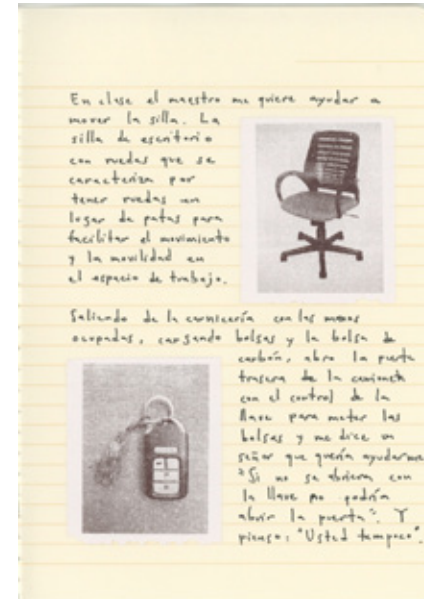 En clase el maestro me quiere ayudar a
mover la silla. La
silla de escritorio
con ruedas que se
caracteriza por
tener ruedas en
lugar de patas para
facilitar el movimiento
y la movilidad en
el espacio de trabajo.
Saliendo de la carnicería con las manos
ocupadas, cargando bolsas y la bolsa de
carbón, abro la puerta
trasera de la camioneta
con el control de la
llave para meter las
bolsas y me dice un
señor que quería ayudarme
"Si no se abriera con
la llave no podría
abrir la puerta". Y
pienso: "Usted tampoco".